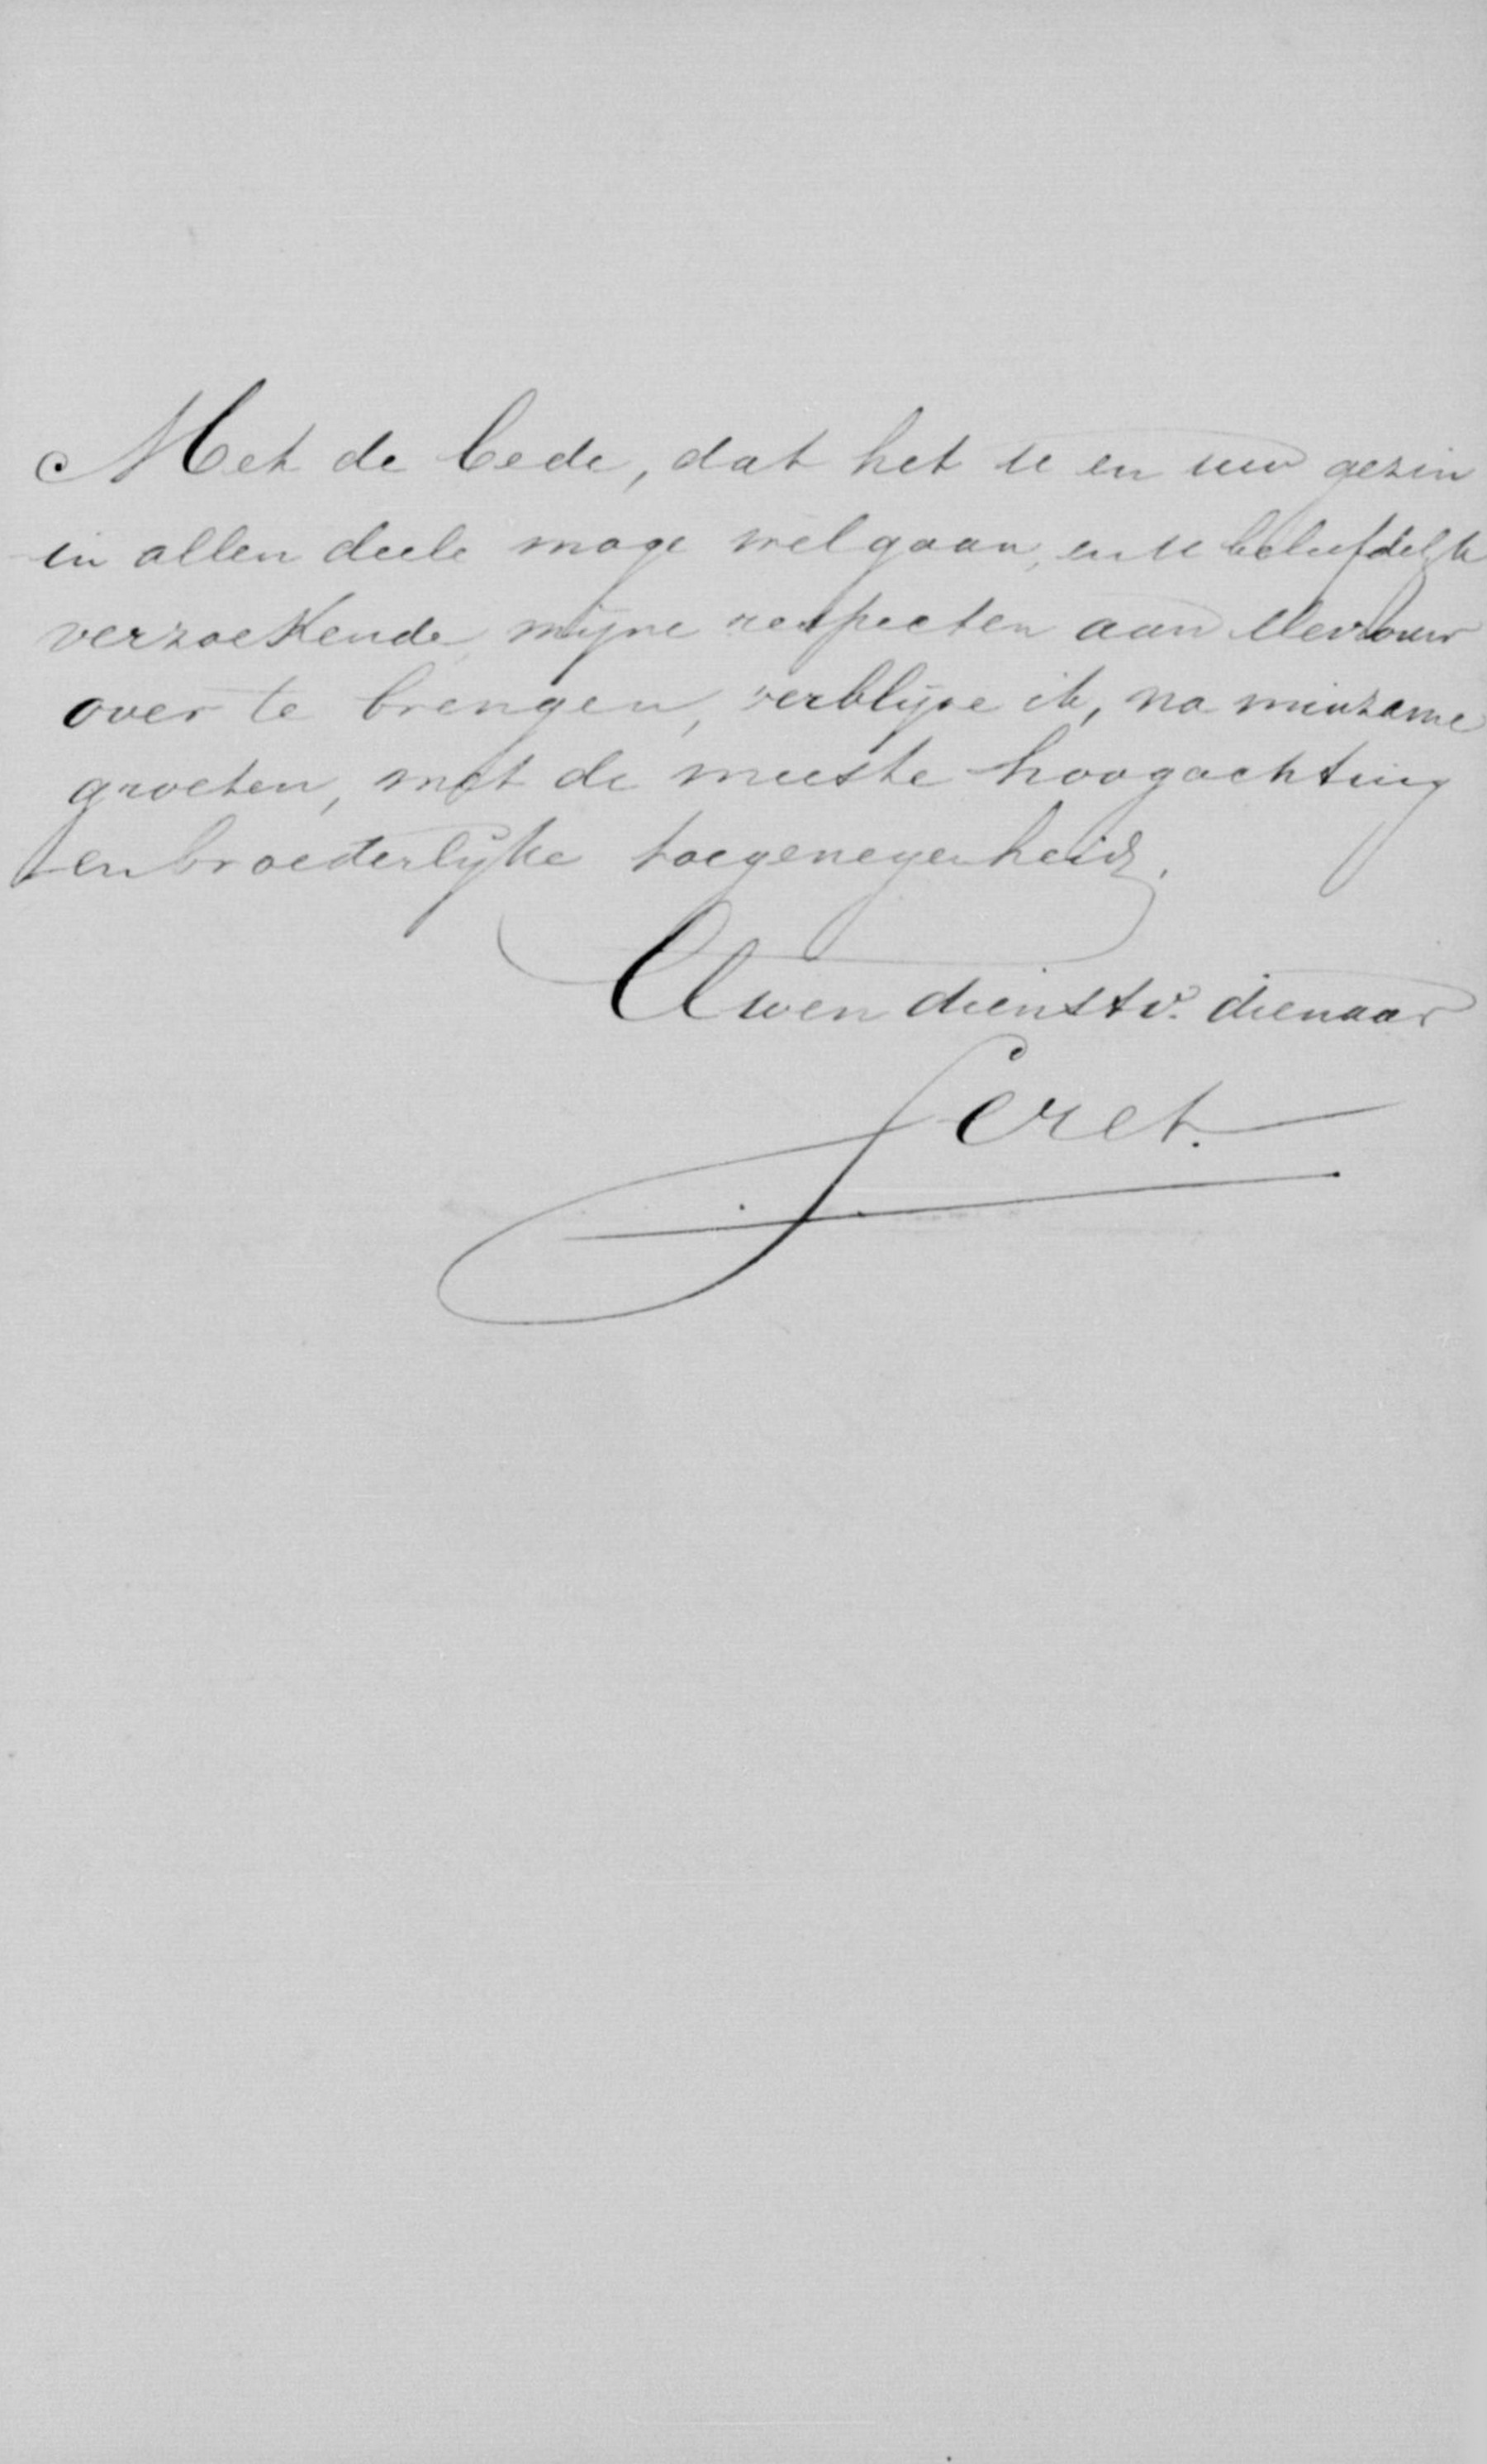 Met de bede, dat het U en uw gezin
in allen deele moge wel gaan, en U beleefdelijk
verzoekende mijne respecten aan Mevrouw
over te brengen, verblijve ik, na minzame
groeten, met de meeste hoogachting
en broederlijke toegenegenheid.
Uwen dienstv. dienaar
Feret.